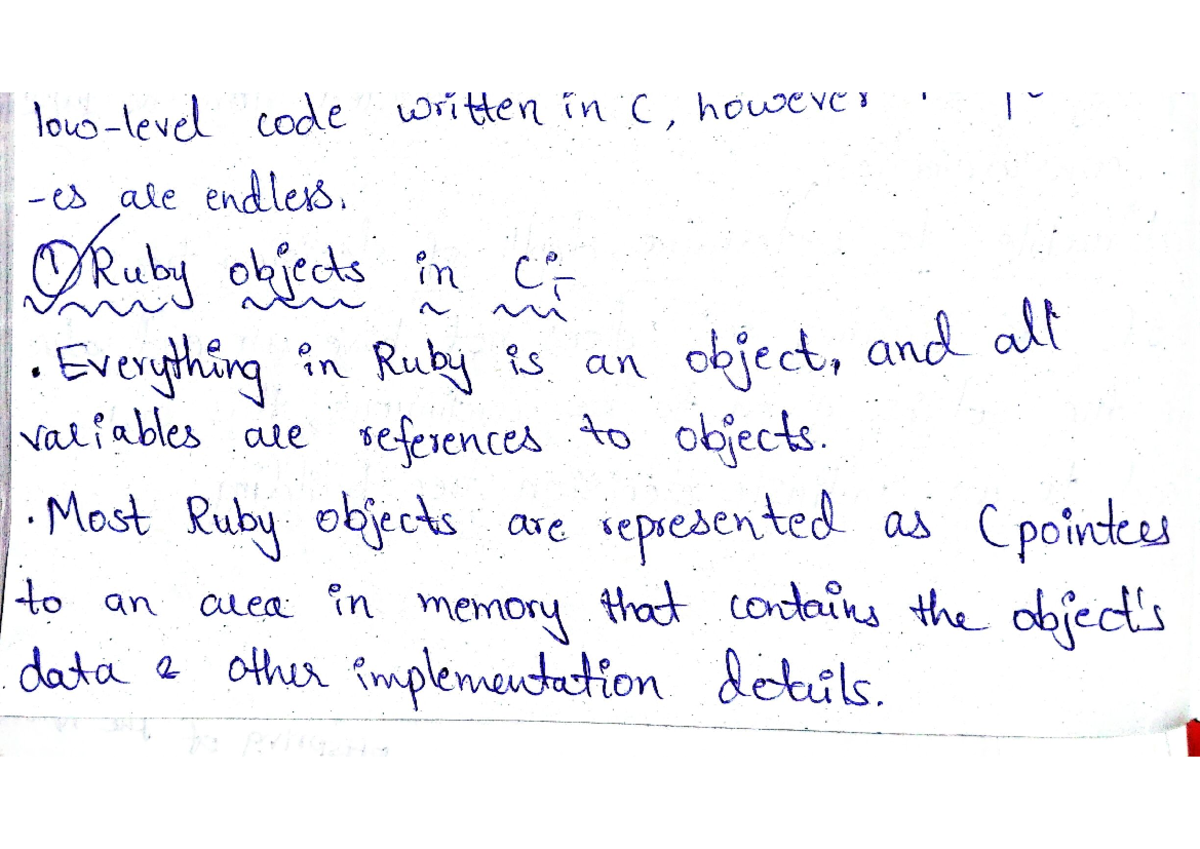 low-level code written in C, however
-es are endless.
① Ruby objects in C:-
. Everything in Ruby is an object, and all
variables are references to objects.
. Most Ruby objects are represented as C pointers
to an area in memory that contains the object's
data & other implementation details.